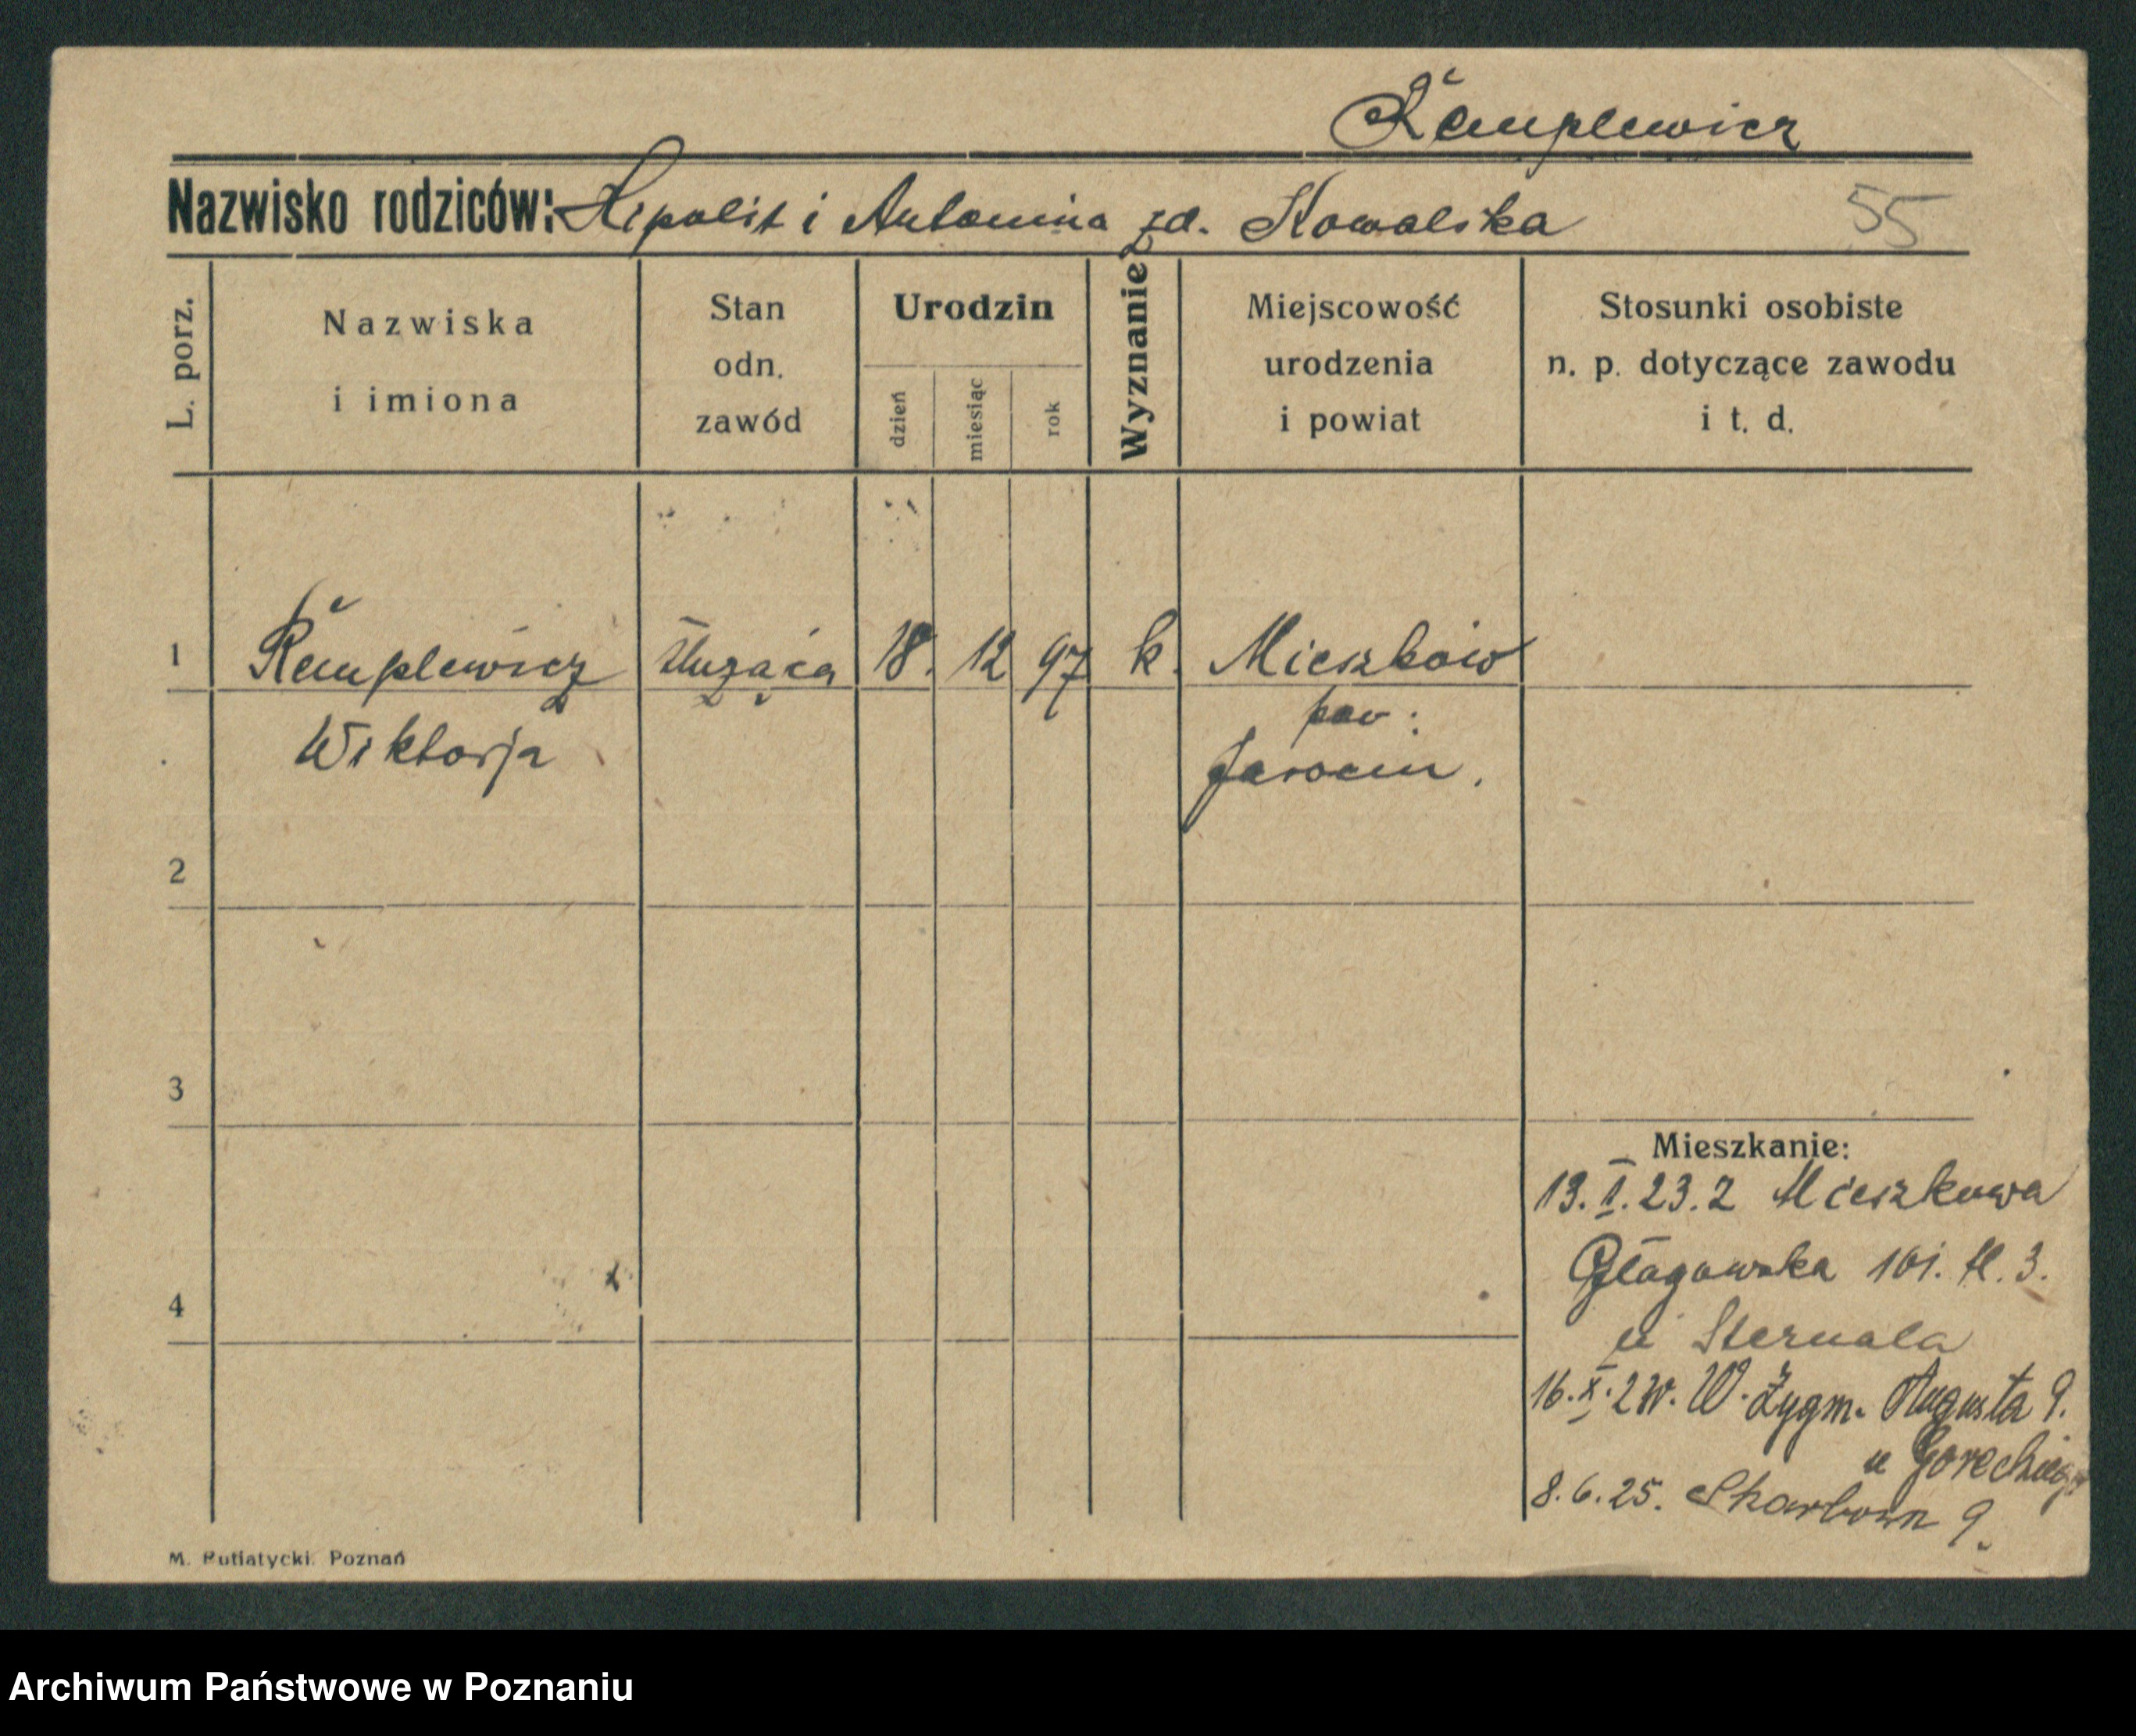 Kemplewicz
Nazwisko rodziców: Hipolit i Antonina zd. Kowalska 55
L. porz.
Nazwiska
i imiona
Stan
odn.
zawód
Urodzin
dzień
miesiąc
rok
Wyznanie
Miejscowość
urodzenia
i powiat
Stosunki osobiste
n. p. dotyczące zawodu
i t. d.
1 Kemplewicz służąca 18. 12 97 k. Mieszków
pow.
Wiktorja
Jarocin.
2
3
4
Mieszkanie:
13.I.23. z Mieszkowa
Głogowska 101. II. 3.
u Sternala
16.X.24. W. Zygm. Augusta 9.
u Goreckiego
8.6.25. Skarbowa 9.
M. Putiatycki. Poznań
Archiwum Państwowe w Poznaniu